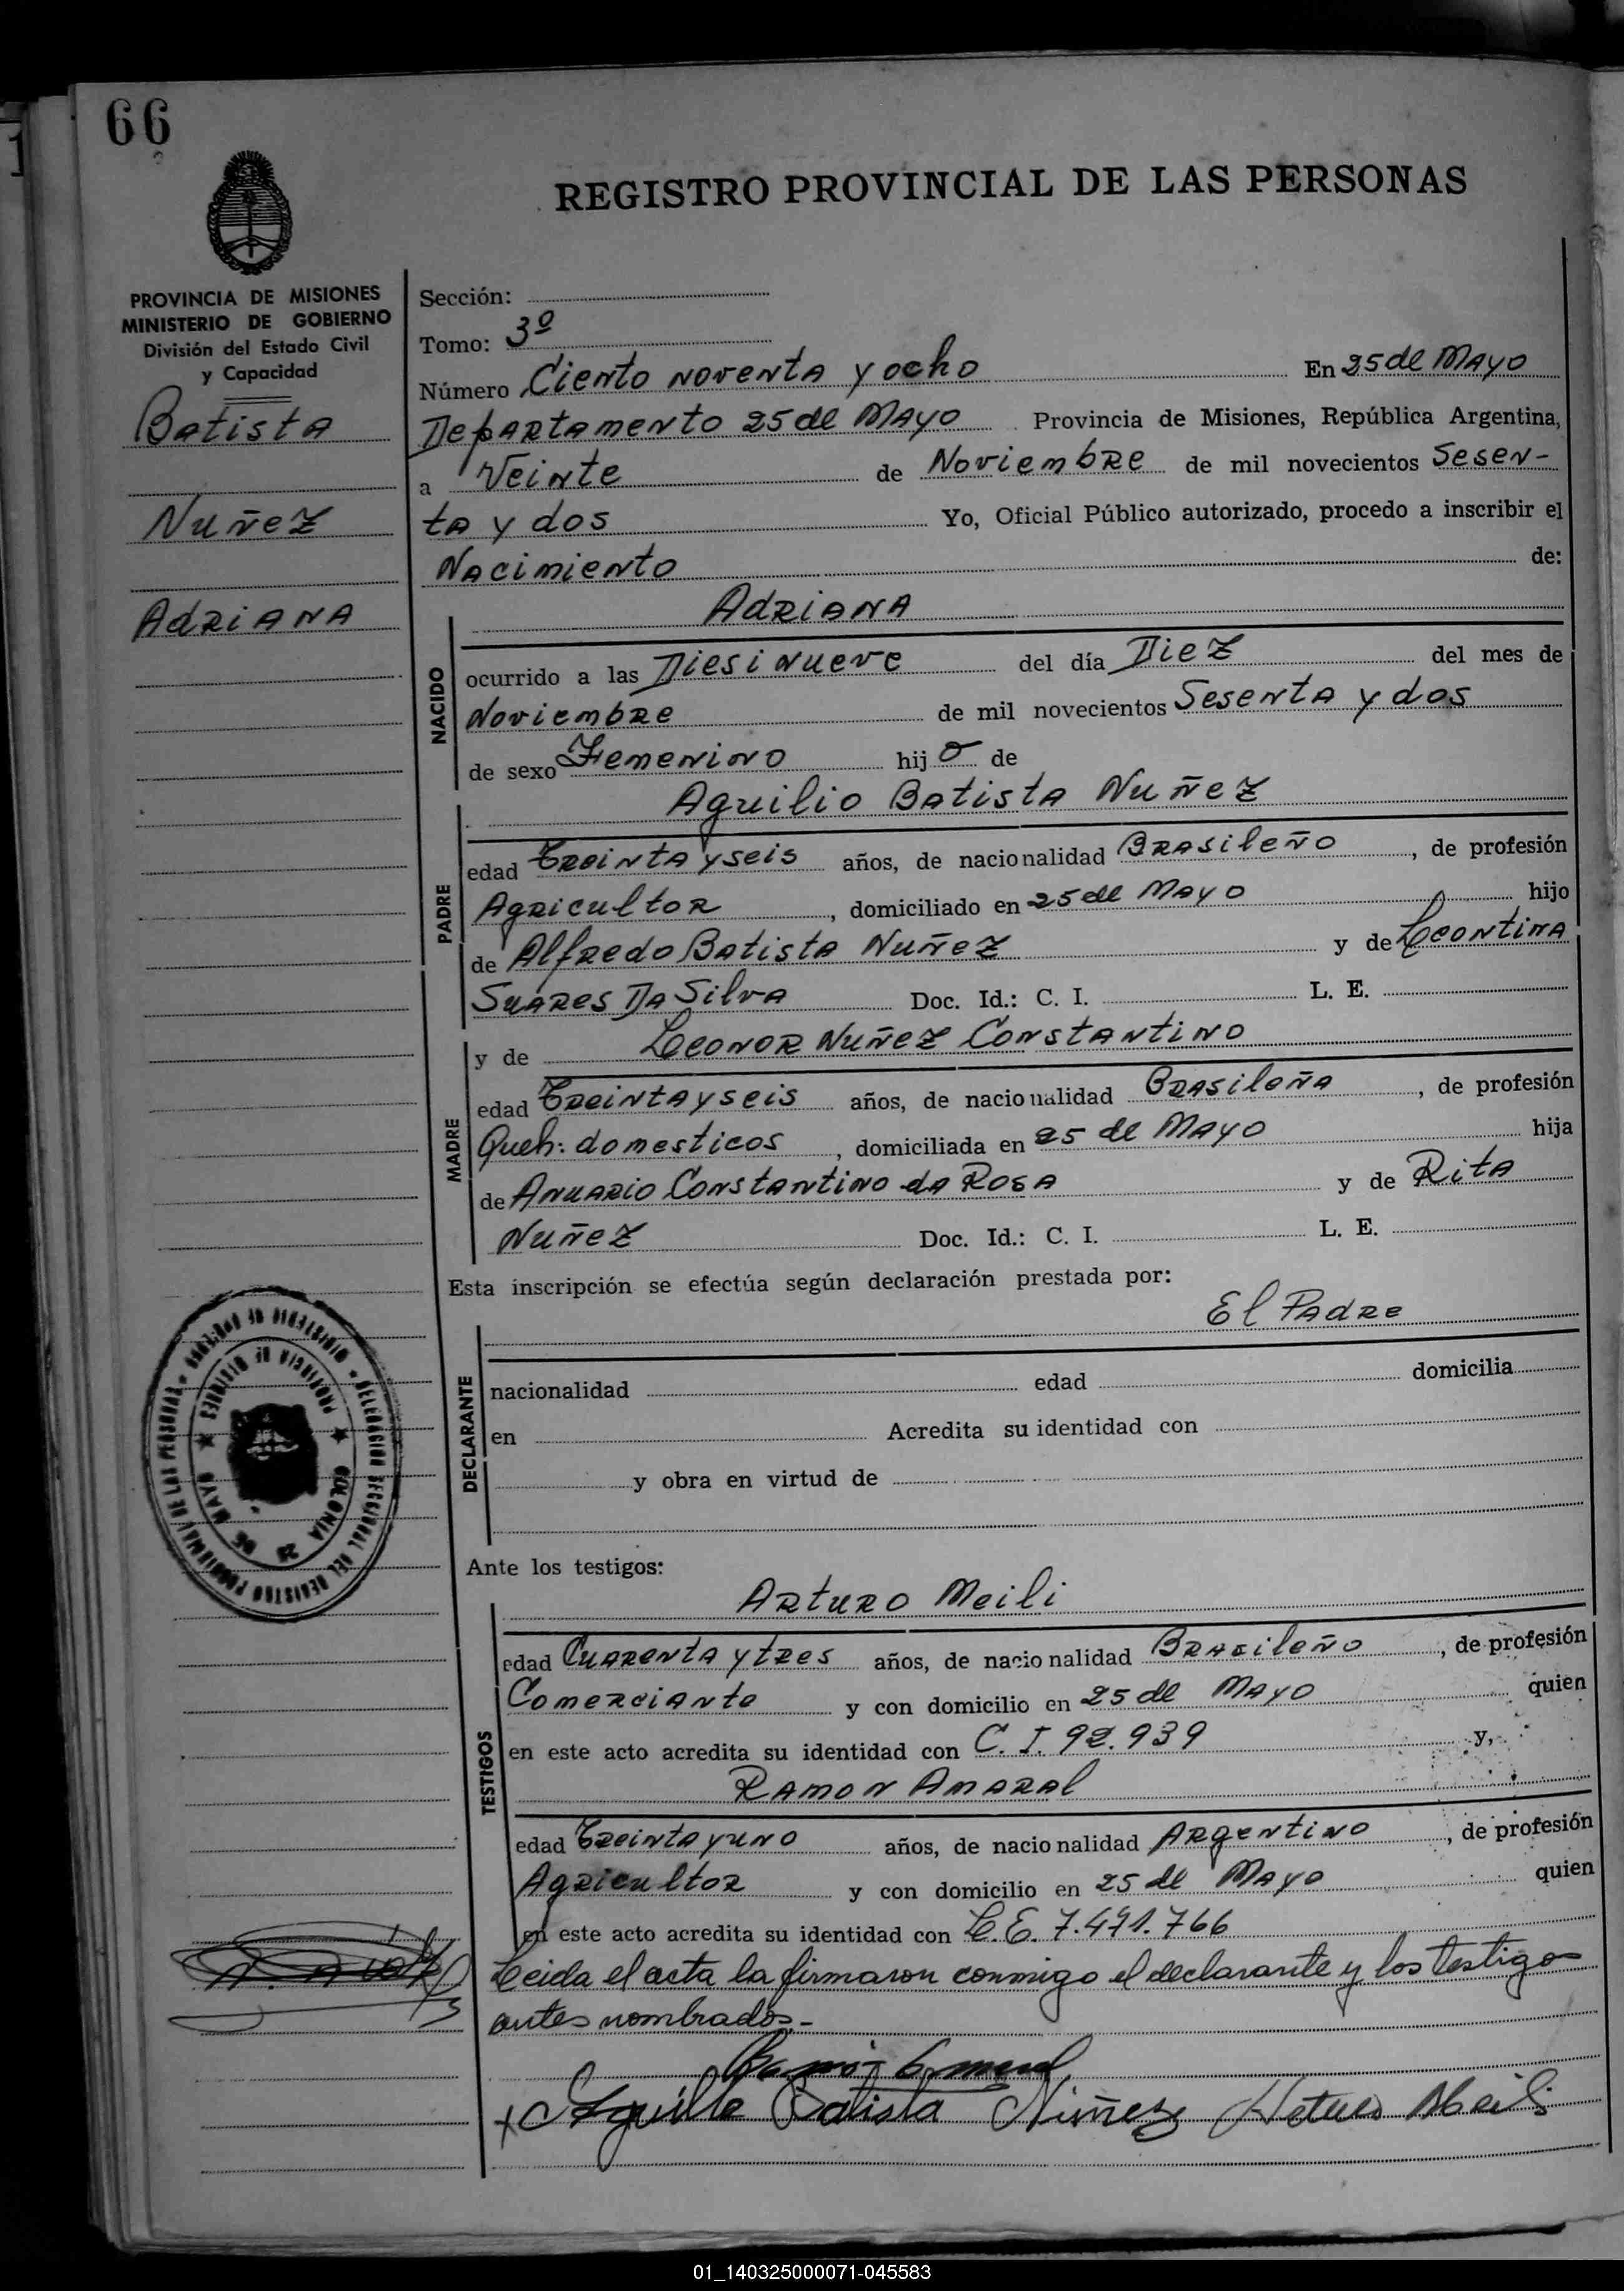 66
REGISTRO PROVINCIAL DE LAS PERSONAS
PROVINCIA DE MISIONES
MINISTERIO DE GOBIERNO
División del Estado Civil
y Capacidad
Batista
Nuñez
Adriana
Sección:
Tomo: 3º
Número Ciento noventa y ocho En 25 de Mayo
Departamento 25 de Mayo Provincia de Misiones, República Argentina,
a Veinte de Noviembre de mil novecientos Sesen-
ta y dos Yo, Oficial Público autorizado, procedo a inscribir el
Nacimiento de:
Adriana
NACIDO
ocurrido a las Diesinueve del día Diez del mes de
Noviembre de mil novecientos Sesenta y dos
de sexo Femenino hij a de
Aguilio Batista Nuñez
PADRE
edad Treinta y seis años, de nacionalidad Brasileño, de profesión
Agricultor, domiciliado en 25 de Mayo hijo
de Alfredo Batista Nuñez y de Leontina
Suares Da Silva Doc. Id.: C. I. L. E.
y de Leonor Nuñez Constantino
MADRE
edad Treinta y seis años, de nacionalidad Brasileña, de profesión
Queh: domesticos, domiciliada en 25 de Mayo hija
de Anuario Constantino da Rosa y de Rita
Nuñez Doc. Id.: C. I. L. E.
Esta inscripción se efectúa según declaración prestada por:
El Padre
DECLARANTE
nacionalidad edad domicilia
en Acredita su identidad con
y obra en virtud de
Ante los testigos:
Arturo Meili
TESTIGOS
edad Cuarenta y tres años, de nacionalidad Brasileño, de profesión
Comerciante y con domicilio en 25 de Mayo quien
en este acto acredita su identidad con C. I. 92.939 y,
Ramon Amaral
edad Treinta y uno años, de nacionalidad Argentino, de profesión
Agricultor y con domicilio en 25 de Mayo quien
en este acto acredita su identidad con L.E. 7.471.766
Leida el acta la firmaron conmigo el declarante y los testigos
antes nombrados.-
Ramon Amaral
Batista Nuñez Arturo Meili
PROVINCIA DE MISIONES
COLONIA 25 DE MAYO
01_140325000071-045583